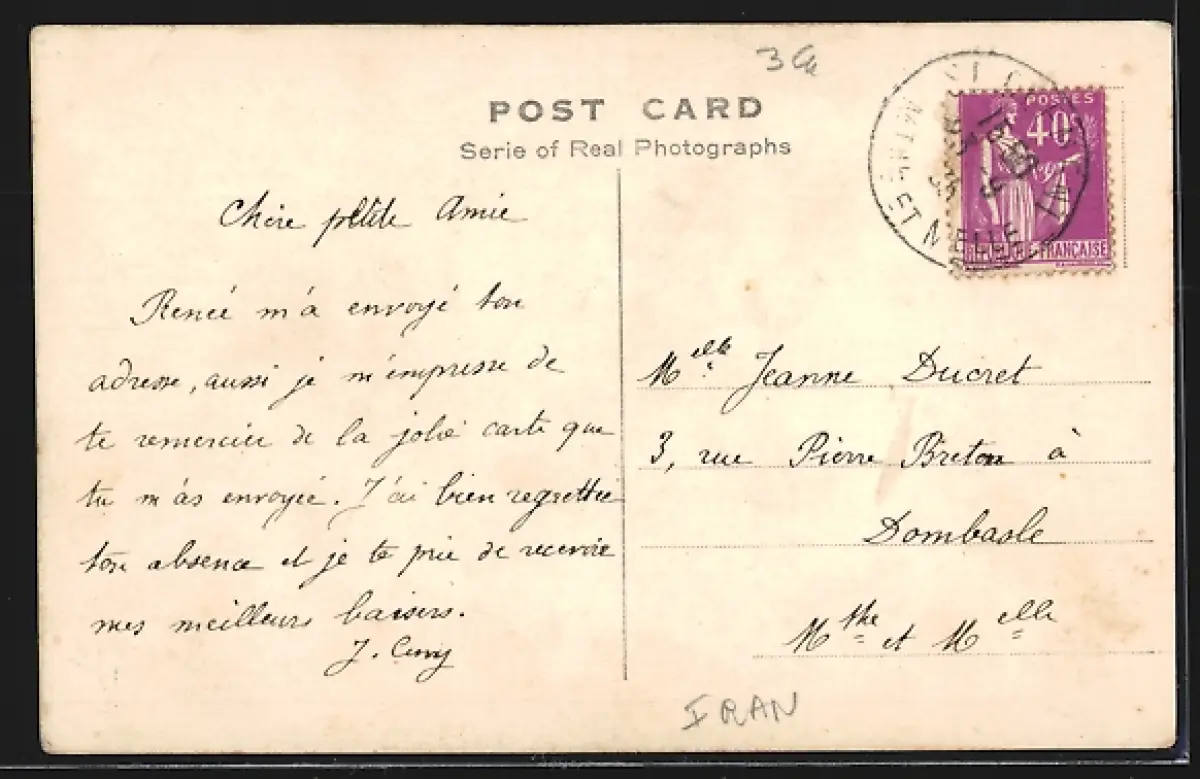 POST CARD
Serie of Real Photographs
Chère petite Amie
Renée m'a envoyé ton
adresse, aussi je m'empresse de
te remercier de la jolie carte que
tu m'as envoyée. J'ai bien regretté
ton absence et je te prie de recevoir
mes meilleurs baisers.
J.
POSTES
40c
REPUBLIQUE FRANÇAISE
MTHE ET MELLE
Melle Jeanne Ducret
3, rue Pierre Breton à
Dombasle
Mthe et Melle
IRAN